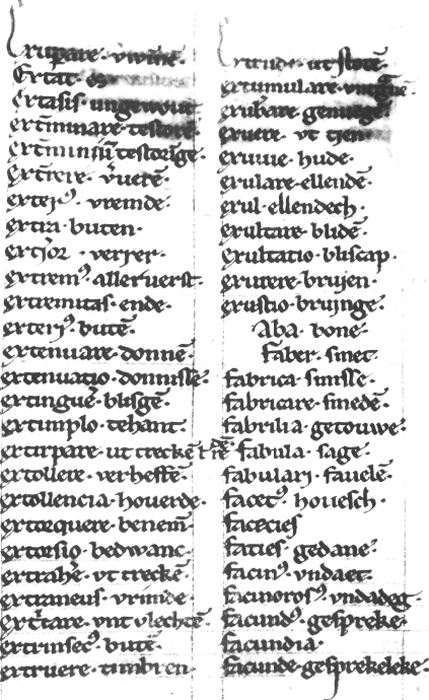 Exstirpare·
Extat·
Extasis· ungewout
exterminare· testorē·
exterminiū· testorīge·
exterere·
exteri⁹· vremde·
extra· buten·
exterior· verrer·
extrem⁹· allerverst·
extremitas· ende·
exteri⁹· butē·
extenuare· donnē·
extenuatio· donnisse·
extinguē· blisgē·
extimplo· tehant·
extirpare· ut treckē
extollere· verheffē·
extollencia· houerde·
extorquere· benem̄·
extorsio· bedwanc·
extrahē· vt treckē·
extraneus· vrimde·
extricare· vnt vlechtē·
extrinsec⁹· butē·
extruere· timbren·
Extrude· ut stotē·
extumulare·
exubare·
exuere· vt tien
exuuie· hude·
exulare· ellendē·
exul· ellendech·
exultare· blidē·
exultatio· bliscap·
exurere· brujen·
exustio· brujnge·
Aba· bone·
Faber· smet·
fabrica· smisse·
fabricare· smedē·
fabrilia· getouwe·
fabula· sage·
fabulari· fauelē·
facet⁹· houesch·
facecies
facies· gedane·
facin⁹· vndaet·
facinoros⁹· vndadeg·
facund⁹· gespreke·
facundia·
facunde· gesprekeleke·